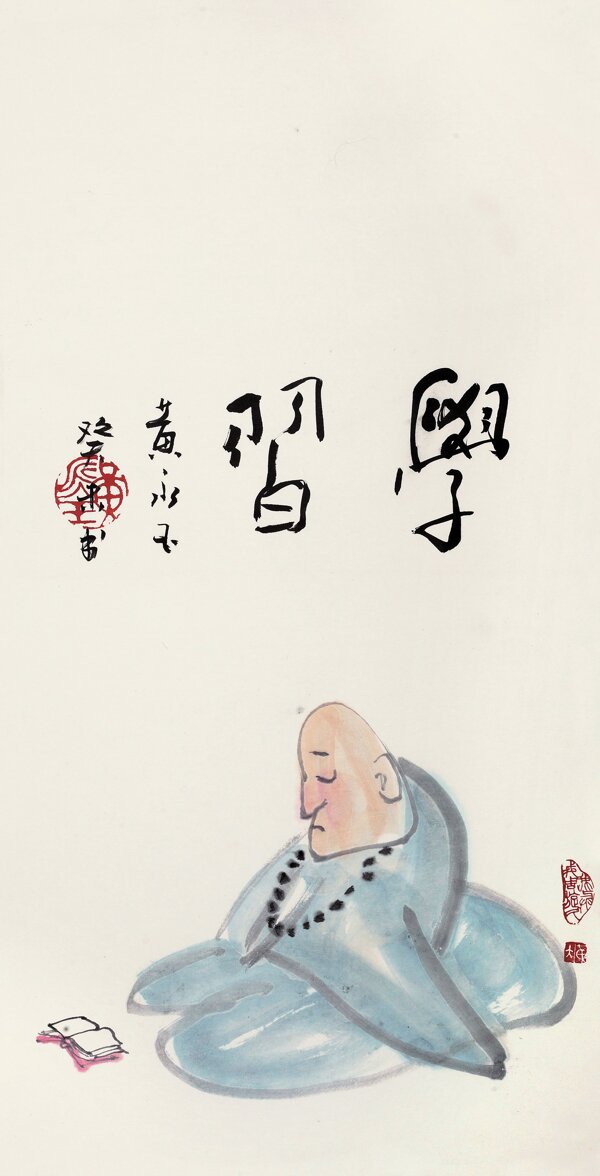 學習
黃永玉
癸未書